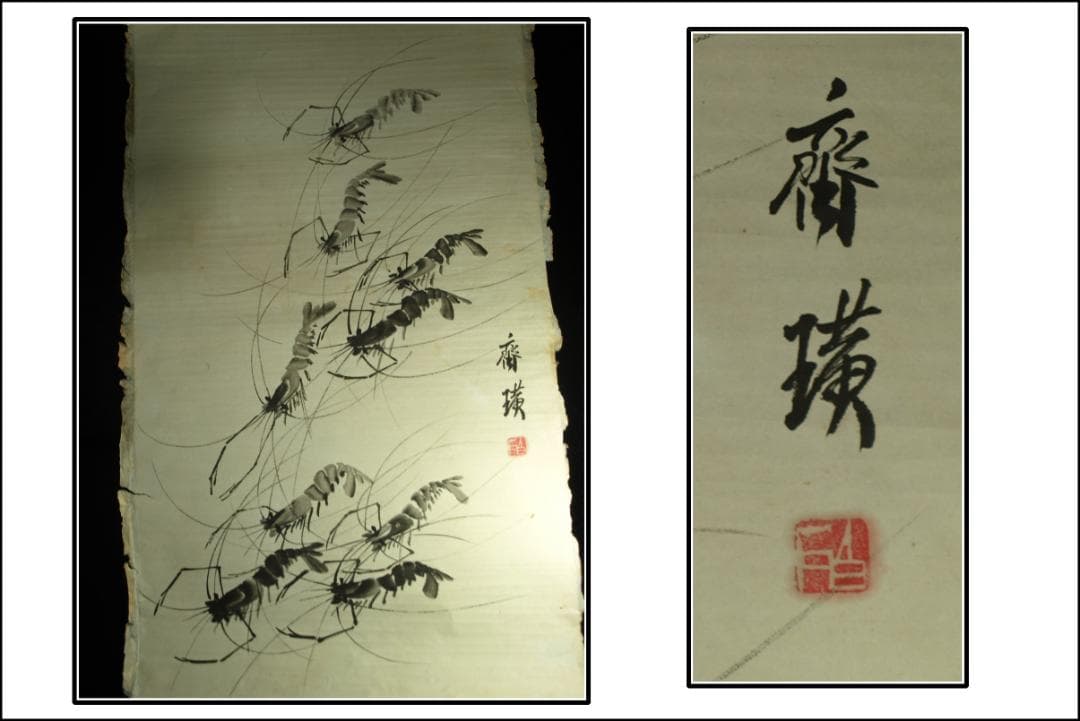 齊璜
齊璜